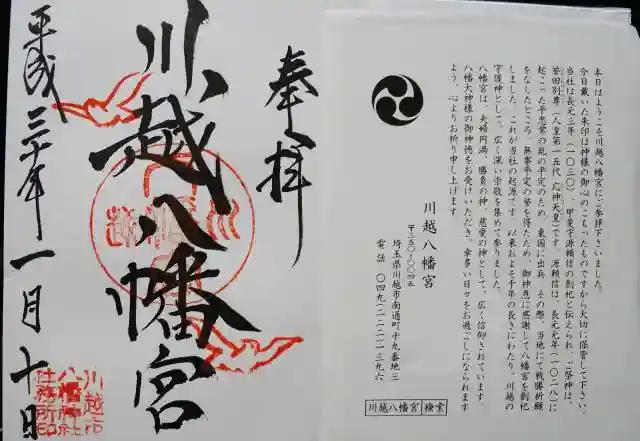 奉拝
川越八幡宮
平成三十年一月十日
川越市
八幡神社
社務所印
本日はようこそ川越八幡宮にご参拝下さいました。
今日戴いた朱印は神様の御心のこもったものですから大切に保管して下さい。
当社は長元三年(一〇三〇)、甲斐守源頼信の創祀と伝えられ、ご祭神は、
誉田別尊(人皇第一五代 応神天皇)です。源頼信は、長元元年(一〇二八)に
起こった平忠常の乱の平定のため、東国に出兵、その際、当地にて戦勝祈願
をなしたところ、無事平定の誉を得たため、御神恩に感謝して八幡宮を創祀
しました。これが当社の起源です。以来およそ千年の長きにわたり、川越の
守護神として、広く深い崇敬を集めて参りました。
八幡宮は、夫婦円満、勝負の神、慈愛の神として、広く信仰されています。
八幡大神様の御神徳をお受けいただき、幸多い日々をお過ごしになられます
よう、心よりお祈り申し上げます。
川越八幡宮
〒三五〇-〇〇四五
埼玉県川越市南通町十九番地三
電話 〇四九(二二二)一三九六
川越八幡宮 検索